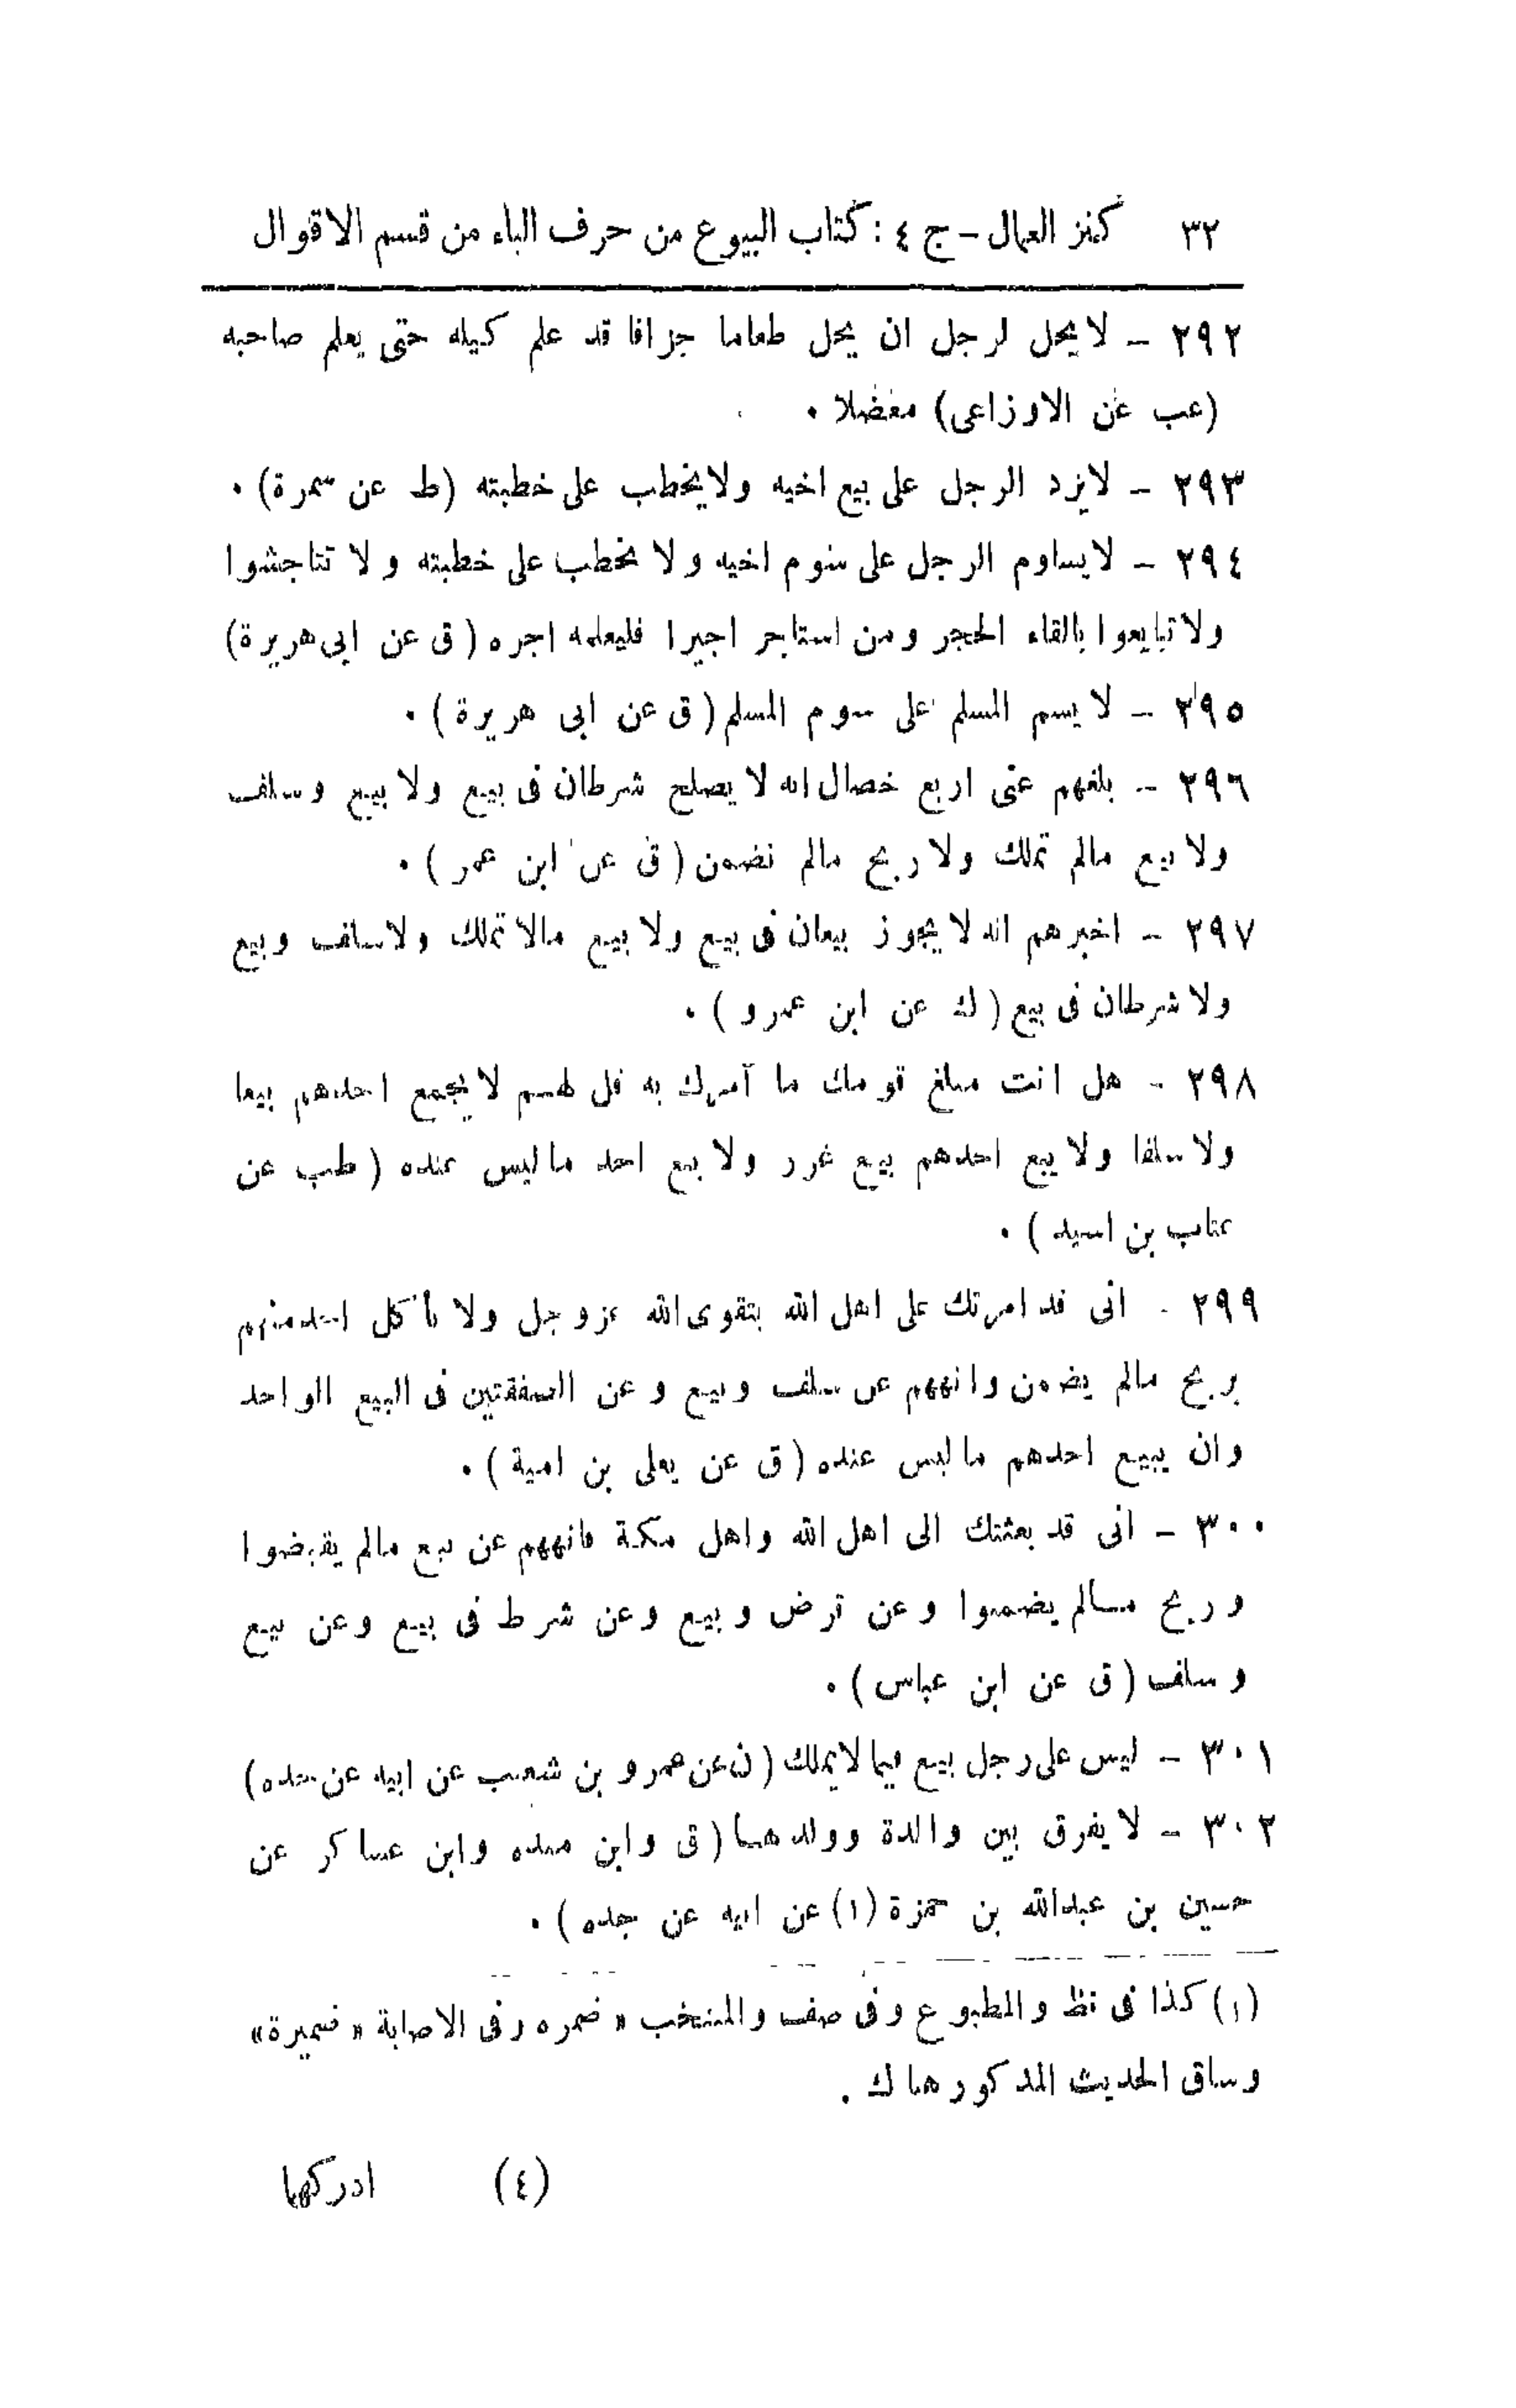 ٣٢ كنز العمال – ج ٤ : كتاب البيوع من حرف الباء من قسم الاقوال
٢٩٢ – لا يحل لرجل ان يحل طعاما جزافا قد علم كيله حتى يعلم صاحبه
(عب عن الاوزاعى) معضلا ٠
٢٩٣ – لا يزد الرجل على بيع اخيه ولا يخطب على خطبته (ط عن سمرة) ٠
٢٩٤ – لا يساوم الرجل على سوم اخيه ولا يخطب على خطبته و لا تناجشوا
ولا تبايعوا بالقاء الحجر ومن استاجر اجيرا فليعلمه اجره ( ق عن ابى هريرة)
٢٩٥ – لا يسم المسلم على سوم المسلم ( ق عن ابى هريرة ) ٠
٢٩٦ – بلغهم عنى اربع خصال انه لا يصلح شرطان فى بيع ولا بيع وسلف
ولا بيع مالم تملك ولا ربح مالم تضمن ( ق عن ابن عمر ) ٠
٢٩٧ – اخبرهم انه لا يجوز بيعان فى بيع ولا بيع مالا تملك ولا سلف وبيع
ولا شرطان فى بيع ( ك عن ابن عمرو ) ٠
٢٩٨ – هل انت مبلغ قومك ما آمرك به قل لهم لا يجمع احدهم بيعا
ولا سلفا ولا يبع احدهم بيع غرر ولا بيع احد ما ليس عنده ( طب عن
عتاب بن اسيد ) ٠
٢٩٩ – انى قد امرتك على اهل الله بتقوى الله عزوجل ولا يأكل احد منهم
بربح مالم يضمن وانههم عن سلف وبيع وعن الصفقتين فى البيع الواحد
وان يبيع احدهم ما ليس عنده ( ق عن يعلى بن امية ) ٠
٣٠٠ – انى قد بعثتك الى اهل الله واهل مكة فانههم عن بيع مالم يقبضوا
وربح مالم يضمنوا وعن قرض وبيع وعن شرط فى بيع وعن بيع
وسلف ( ق عن ابن عباس ) ٠
٣٠١ – ليس على رجل بيع فيما لا يملك ( ن عن عمرو بن شعيب عن ابيه عن جده )
٣٠٢ – لا يفرق بين والدة وولدها ( ق وابن منده وابن عساكر عن
حسين بن عبدالله بن حمزة (١) عن ابيه عن جده ) ٠
(١) كذا فى نظ والمطبوع وفى صف والمنتخب « ضمره وفى الاصابة « ضميرة»
وساق الحديث المذكور هناك .
(٤) ادركها